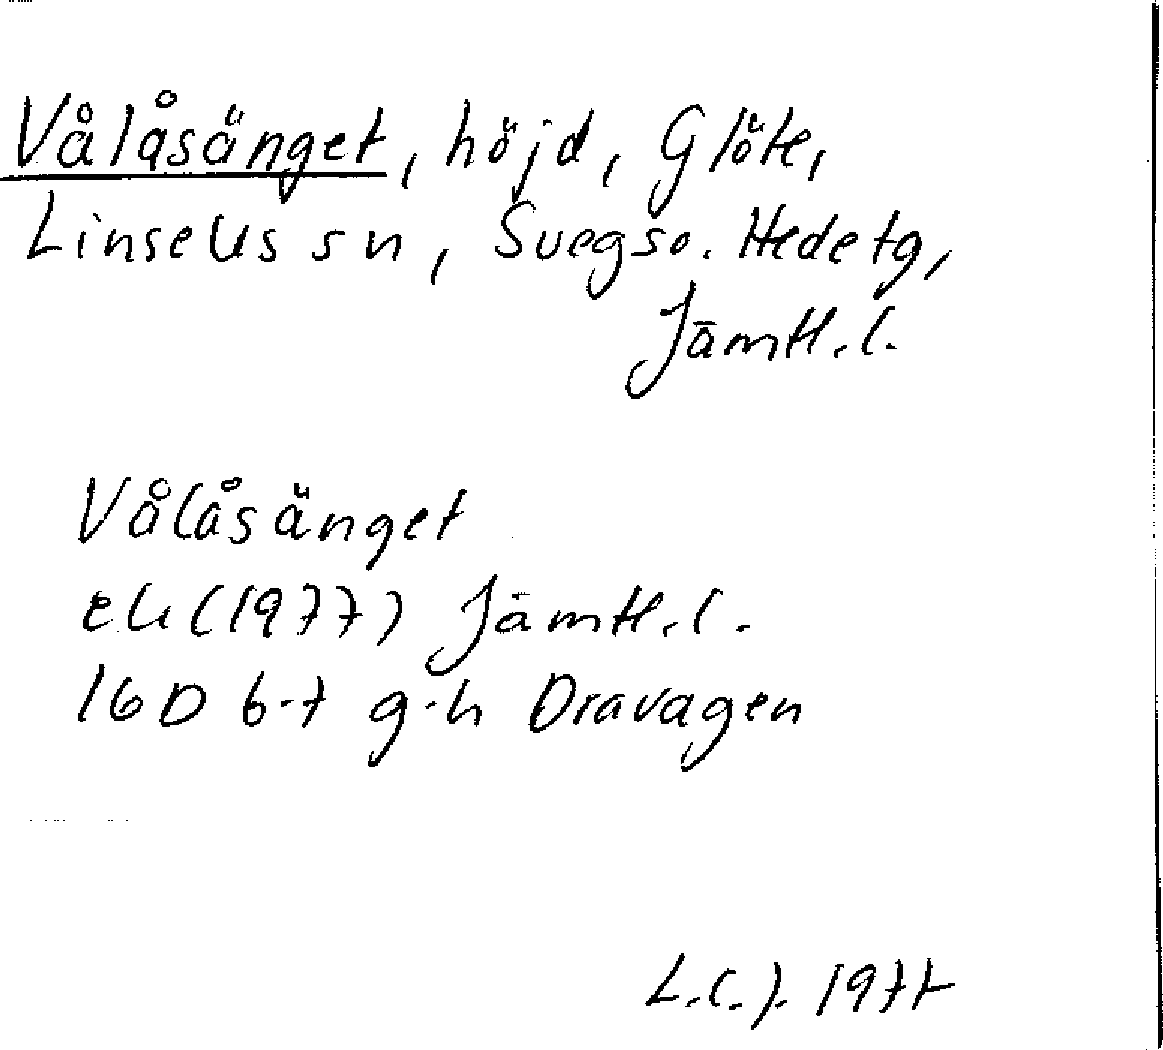 Vålåsänget, höjd, Glöte,
Linsells sn, Svegs o. Hede tg,
Jämtl. l.
Vålåsänget
ek (1977) Jämtl. l.
16 D 6-7 g-h Dravagen
L.C.J. 1977